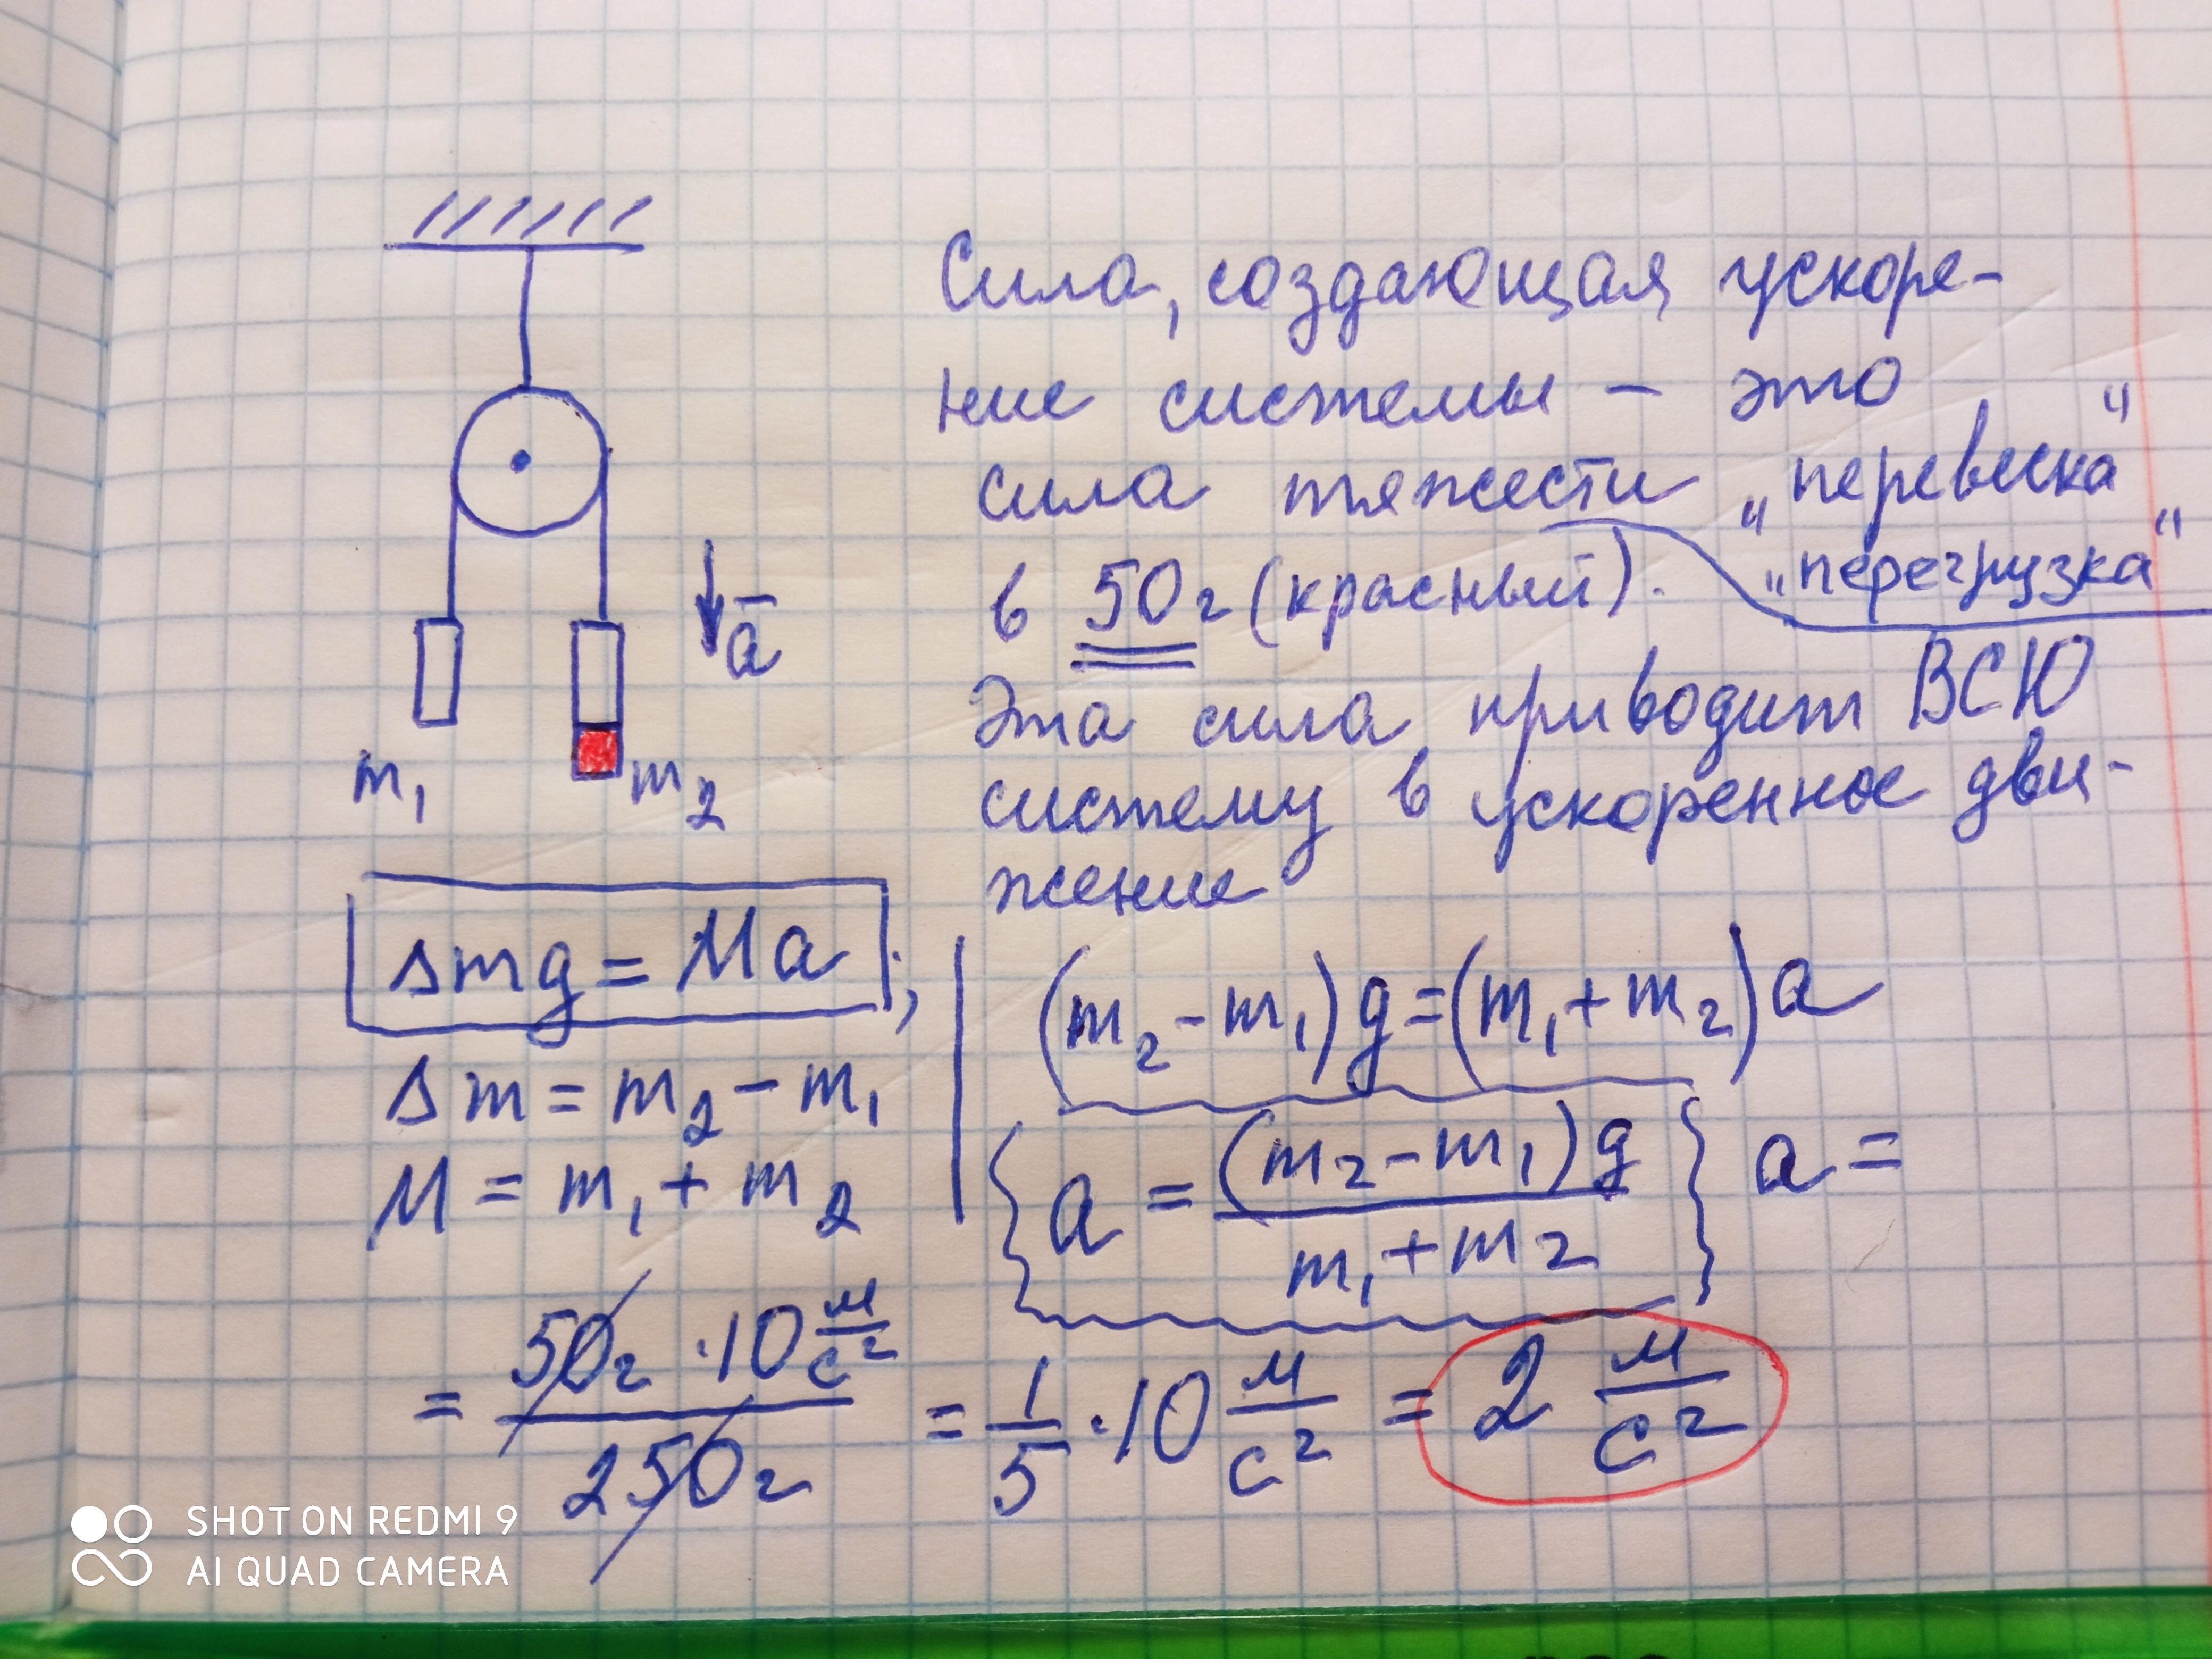 Сила, создающая ускоре-
ние системы – это
сила тяжести „перевеска“
„перегрузка“
в 50г (красный).
Эта сила приводит ВСЮ
систему в ускоренное дви-
жение
a̅
m₁ m₂
Δmg = Ma;
Δm = m₂ – m₁
M = m₁ + m₂
(m₂ – m₁)g = (m₁ + m₂)a
a = (m₂ – m₁)g / m₁ + m₂
a =
= 50г · 10 м/с² / 250г = 1/5 · 10 м/с² = 2 м/с²
SHOT ON REDMI 9
AI QUAD CAMERA